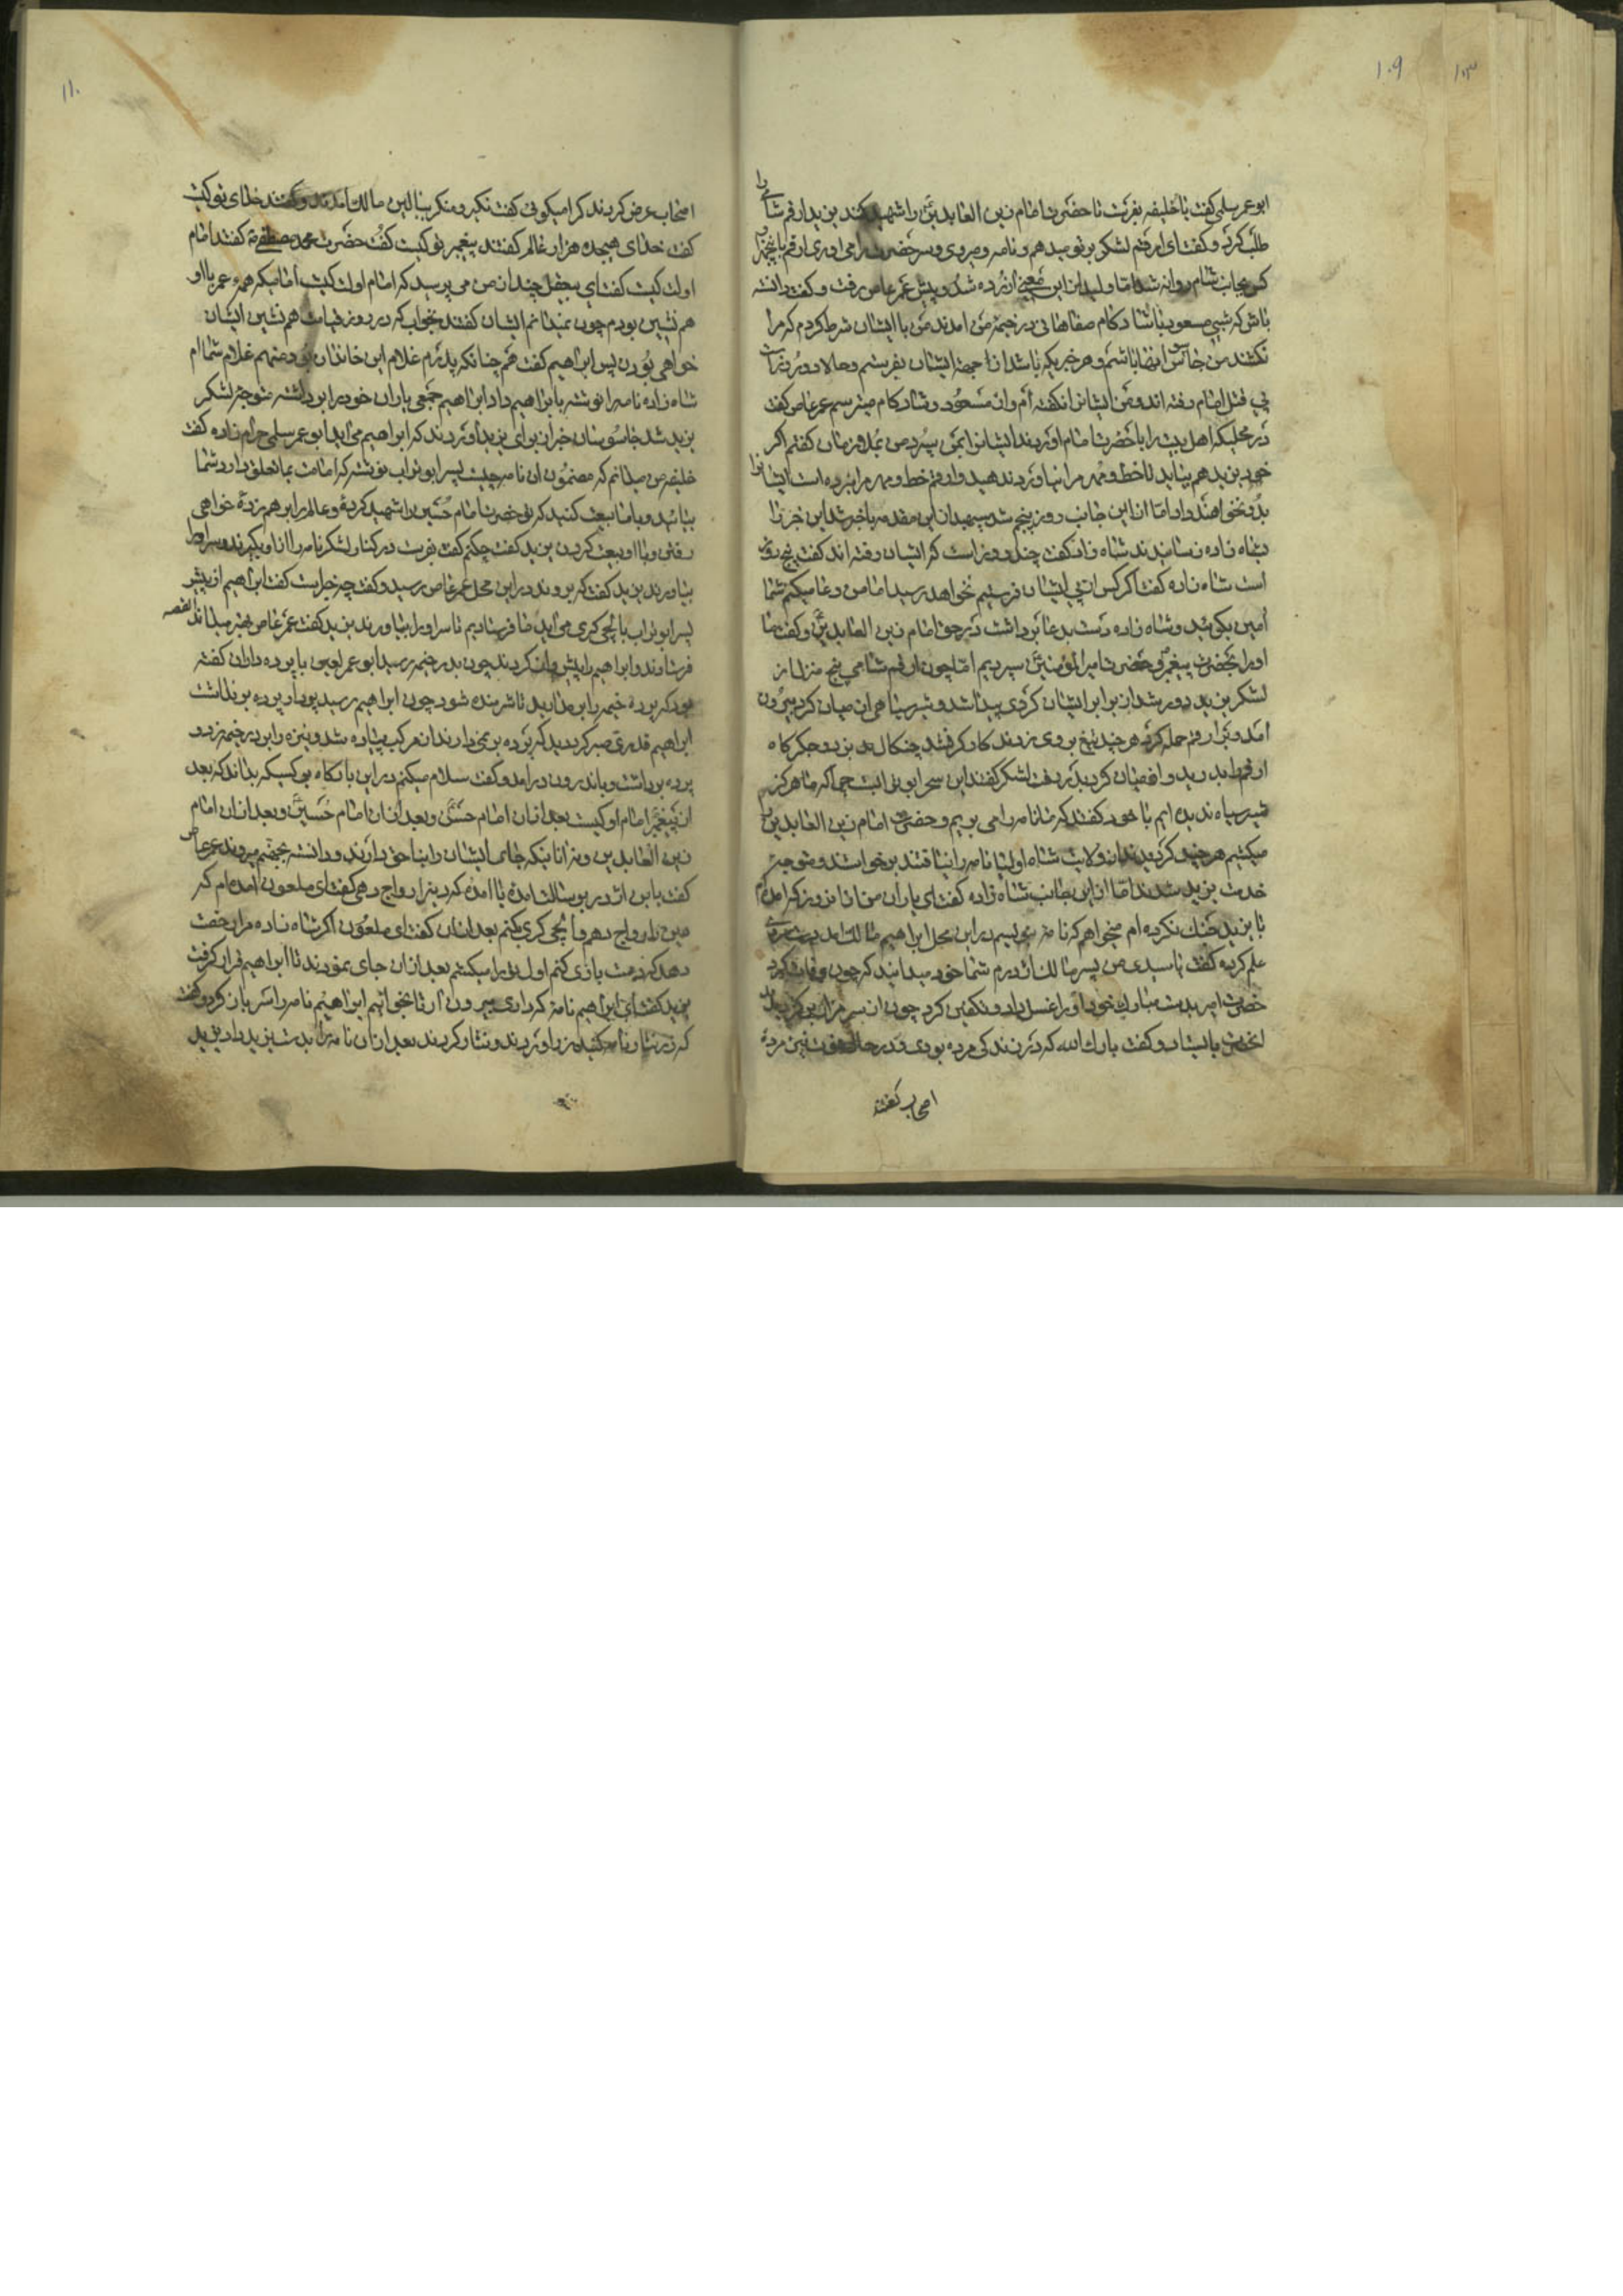 ۱۰۹
ابو عمر سلمی کفت یا خلیفه بفرست تا حضرت امام زین العابدین را شهید کند یزید ارقم شامی را
طلب کرد و کفت ای ارقم لشکر بتو میدهم و نامه و میروی و سر حضرت را می اوری ارقم با پنجهزار
کس بجانب شام روانه شد اما ولید از این معنی ازرده شد و پیش عمر عاص رفت و کفت دانسته
باش که شبی مسعود با شادکام صفاهانی در خیمه من امدند من با ایشان شرط کردم که مرا
نکشند من جاسوس ایشان باشم و هر خبریکه باشد از جهة ایشان بفرستم و حالا دو روز است
پی قتل امام رفته اند و من ایشانرا نکفته ام و از مسعود و شادکام میترسم عمر عاص کفت
در محلیکه اهل بیت را با حضرت امام اوردند ایشانرا بمن سپرد من بدو زمان کفتم اکر
خود یزید هم بیاید تا خط و مهر مرا نیاورد ندهید و ارقم خط و مهر مرا نبرده است ایشانرا
بدو نخواهند داد اما از این جانب روز پنجم شد سپهدار این مقدمه با خبر شد این خبر را
بشاه زاده رسانیدند شاه زاده کفت چند روز است که ایشان رفته اند کفت پنج روز
است شاه زاده کفت اکر کس از پی ایشان فرستیم نخواهد رسید اما من دعا میکنم شما
امین بکوئید و شاه زاده دست بدعا برداشت در حق امام زین العابدین و کفت ما
او را بحضرت پیغمبر و حضرت امیر المؤمنین سپردیم اما چون ارقم شامی پنج منزل از
لشکر یزید دور شد از برابر ایشان کردی پیدا شد و شیر سیاهی از میان کرد بیرون
امد و بر ارقم حمله کرد هر چند تیغ بر وی زدند کار نکرد چنکال بزد و جکرکاه
ارقم را بدرید و از میان کرد بدر رفت لشکر کفتند این سحر ابو تراب است چرا که ما هرکز
شیر سیاه ندیده ایم با خود کفتند که ما نامه را می بریم و حضرت امام زین العابدین را
میکشیم هر چند کردیدند از ولایت شاه اولیا نامه را نیافتند برخواستند و متوجه
خدمت یزید شدند اما از این جانب شاه زاده کفت ای یاران من از ان روز که امده ام
با یزید جنک نکرده ام میخواهم که نامه بنویسم در این محل ابراهیم مالک امد و سر
علم کرده کفت یا سیدی من پسر مالک اژدرم شما خود میدانید که چون وفات کرد
حضرت امیر بدست مبارک خود او را غسل داد و تکفین کرد چون از سر مزار برکردید
انحضرت بایستاد و کفت بارک الله که در زندکی مرده بودی و در حال موت نیز مردی
اصحاب کفتند
۱۱۰
اصحاب عرض کردند کرا میکوئی کفت نکیر و منکر ببالین مالک امدند و کفتند خدای تو کیست
کفت خدای هیجده هزار عالم کفتند پیغمبر تو کیست کفت حضرت محمد مصطفی کفتند امام
اولت کیست کفت ای بیعقل چند از من می پرسید که امام اولت کیست امامیکه همه عمر با او
هم نشین بودم چون نمیدانم ایشان کفتند بخواب که در روز قیامت هم نشین ایشان
خواهی بودن پس ابراهیم کفت هم چنانکه پدرم غلام این خاندان بود منهم غلام شما ام
شاه زاده نامه را نوشته بابراهیم داد ابراهیم جمعی یاران خود را برداشته متوجه لشکر
یزید شد جاسوسان خبر از برای یزید اوردند که ابراهیم می اید ابو عمر سلمی حرام زاده کفت
خلیفه من میدانم که مضمون ان نامه چیست پسر ابو تراب نوشته که امامت بما تعلق دارد شما
بیائید و با ما بیعت کنید که تو حضرت امام حسین را شهید کردۀ و عالم را بر هم زدۀ خواهی
رفتن و با او بیعت کردن یزید کفت چکنم کفت بفرست در کنار لشکر نامه را از او بکیرند و سر او را
بیاورند یزید کفت که بروند در این محل عمر عاص رسید و کفت چه خبر است کفت ابراهیم از پیش
پسر ابو تراب بایلچی کری می اید ما فرستادیم تا سر او را بیاورند یزید کفت عمر عاص بهتر میداند القصه
فرستادند و ابراهیم را پیش روان کردند چون بدر خیمه رسید ابو عمر لعین با پرده داران کفته
بود که پرده خیمه را بر مدارید تا شرمنده شود چون ابراهیم رسید پرده دار پرده بر نداشت
ابراهیم قدری صبر کرد دید که پرده بر نمی دارند از مرکب پیاده شد و نیزه را بر در خیمه زد و
پرده برداشت و باندرون در امد و کفت سلام میکنم در این بارکاه بر کسیکه بداند که بعد
از پیغمبر امام او کیست بعد از ان امام حسن و بعد از ان امام حسین و بعد از ان امام
زین العابدین و نه از اینکه جای ایشان را بناحق دارند و دانسته بجهنم میروند عمر عاص
کفت یا ابن اژدر برسالت امدۀ یا امدۀ که دینرا رواج دهی کفت ای ملعون امده ام که
دین را رواج دهم و ایلچی کری کنم بعد از ان کفت ای ملعون اکر شاه زاده مرا رخصت
دهد که دست بازی کنم اول تو را میکشم بعد از ان جای نمودند تا ابراهیم قرار کرفت
یزید کفت ای ابراهیم نامۀ که داری بیرون ار تا بخوانیم ابراهیم نامه را سر باز کرد و کفت
که زر نثار نامه کنید زر اوردند و نثار کردند بعد از ان نامه را بدست یزید داد یزید